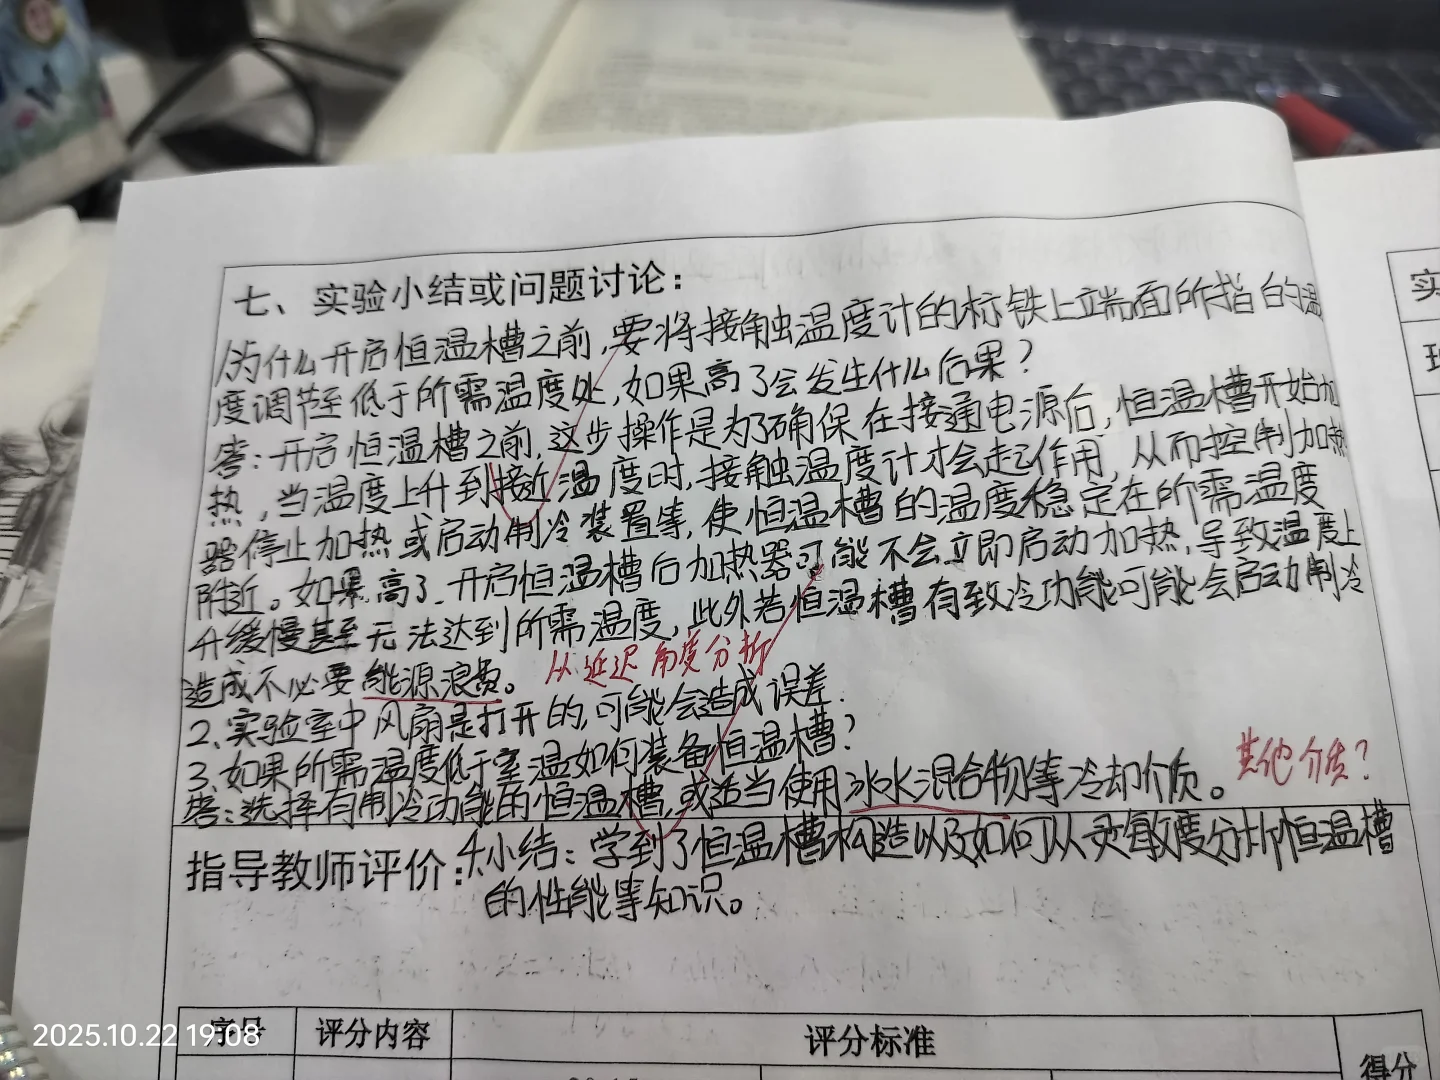 七、实验小结或问题讨论：
1.为什么开启恒温槽之前，要将接触温度计的标铁上端面所指的温
度调节至低于所需温度处，如果高了会发生什么后果？
答：开启恒温槽之前，这步操作是为了确保在接通电源后，恒温槽开始加
热，当温度上升到接近温度时，接触温度计才会起作用，从而控制加热
器停止加热或启动制冷装置等，使恒温槽的温度稳定在所需温度
附近。如果高了.开启恒温槽后加热器可能不会立即启动加热，导致温度上
升缓慢甚至无法达到所需温度，此外若恒温槽有致冷功能可能会启动制冷
造成不必要能源浪费。
从延迟角度分析
2、实验室中风扇是打开的，可能会造成误差.
3、如果所需温度低于室温如何装备恒温槽？
答：选择有制冷功能的恒温槽，或适当使用冰水混合物等冷却介质。
其他介质？
指导教师评价：
4.小结：学到了恒温槽构造以及如何从灵敏度分析恒温槽
的性能等知识。
序号 评分内容 评分标准 得分
实
班
2025.10.22 19:08